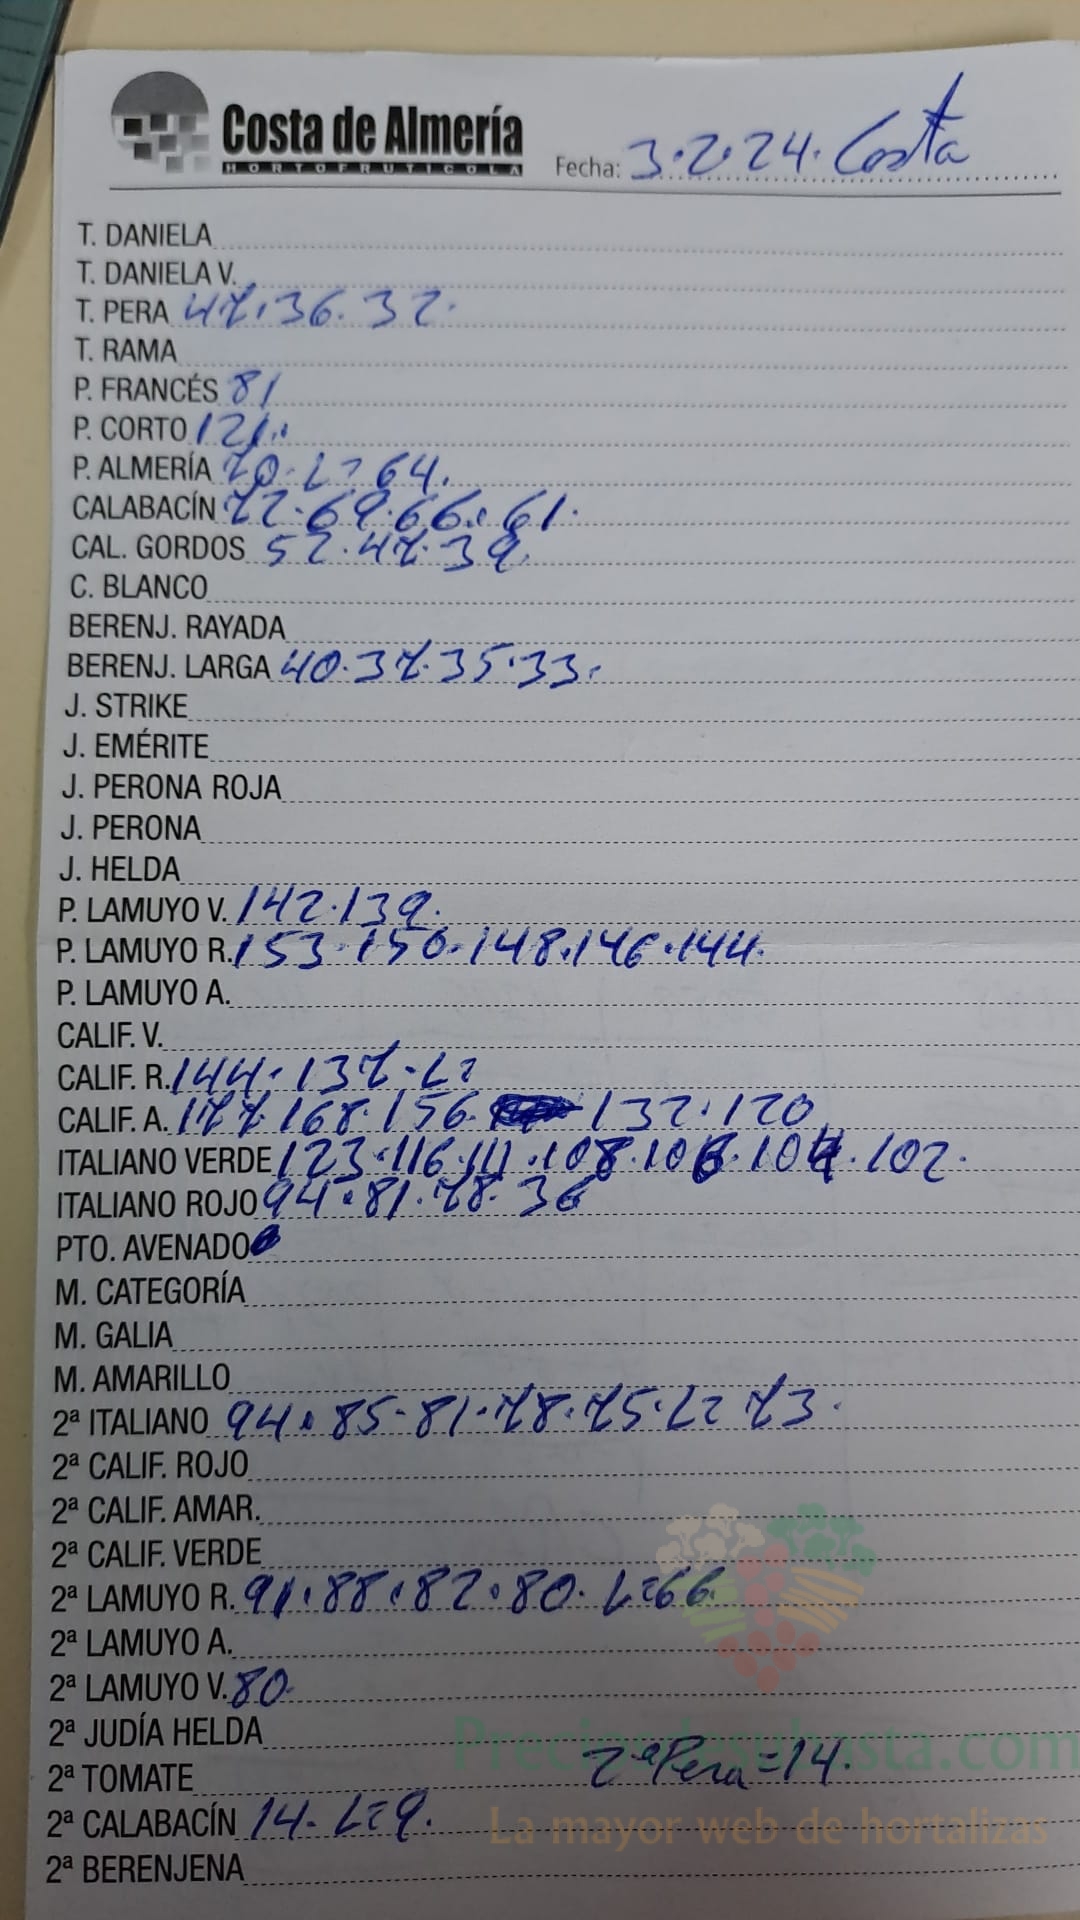 Costa de Almería
HORTOFRUTICOLA
Fecha: 3.2.24. Costa
T. DANIELA
T. DANIELA V.
T. PERA 47.36.32.
T. RAMA
P. FRANCÉS 81
P. CORTO 121.
P. ALMERÍA 70. L= 64.
CALABACÍN 72.69.66.61.
CAL. GORDOS 52.47.39.
C. BLANCO
BERENJ. RAYADA
BERENJ. LARGA 40.37.35.33.
J. STRIKE
J. EMÉRITE
J. PERONA ROJA
J. PERONA
J. HELDA
P. LAMUYO V. 142.139.
P. LAMUYO R. 153.150.148.146.144.
P. LAMUYO A.
CALIF. V.
CALIF. R. 144.137.L=
CALIF. A. 177.168.156. 132.120
ITALIANO VERDE 123.116.111.108.106.104.102.
ITALIANO ROJO 94.81.78.36
PTO. AVENADO
M. CATEGORÍA
M. GALIA
M. AMARILLO
2ª ITALIANO 94.85.81.78.75.L=73.
2ª CALIF. ROJO
2ª CALIF. AMAR.
2ª CALIF. VERDE
2ª LAMUYO R. 91.88.82.80. L=66
2ª LAMUYO A.
2ª LAMUYO V. 80
2ª JUDÍA HELDA
Preciosdesubasta.com
2ª TOMATE 2ª Pera=14.
2ª CALABACÍN 14. L=9.
La mayor web de hortalizas
2ª BERENJENA